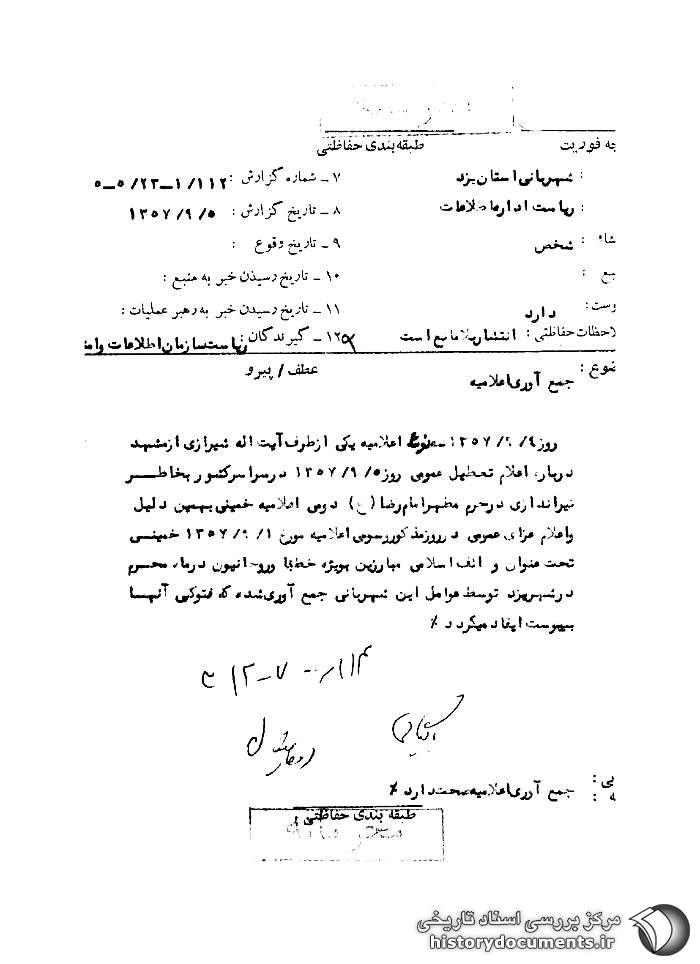 طبقه‌بندی حفاظتی
به فوریت
: شهربانی استان یزد
۷ـ شماره گزارش : ۵ـ۵/۲۳ـ۱/۱۱۲
: ریاست اداره اطلاعات
۸ ـ تاریخ گزارش : ۱۳۵۷/۹/۵
: شخص
۹ ـ تاریخ وقوع :
۱۰ ـ تاریخ رسیدن خبر به منبع :
وست : دارد
۱۱ ـ تاریخ رسیدن خبر به رهبر عملیات :
لاحظات حفاظتی : انتشار بلامانع است
۱۲ـ گیرندگان : ریاست سازمان اطلاعات وامن
عطف / پیرو
ضوع : جمع آوری اعلامیه
روز ۱۳۵۷/۹/۹ ـ سه نوع اعلامیه یکی ازطرف آیت اله شیرازی ازمشهد
درباره اعلام تعطیل عمومی روز ۱۳۵۷/۹/۵ درسراسرکشور بخاطر
تیراندازی درحرم مطهرامام رضا (ع) دومی اعلامیه خمینی بهمین دلیل
واعلام عزای عمومی درروزمذکورسومی اعلامیه مورخ ۱۳۵۷/۹/۱ خمینی
تحت عنوان وظائف اسلامی مبارزین بویژه خطبا وروحانیون درماه محرم
درشهریزد توسط عوامل این شهربانی جمع آوری شده که فتوکپی آنها
بپیوست ایفاد میگردد ٪
جمع آوری اعلامیه صحت دارد ٪
طبقه بندی حفاظتی
مرکز بررسی اسناد تاریخی
historydocuments.ir